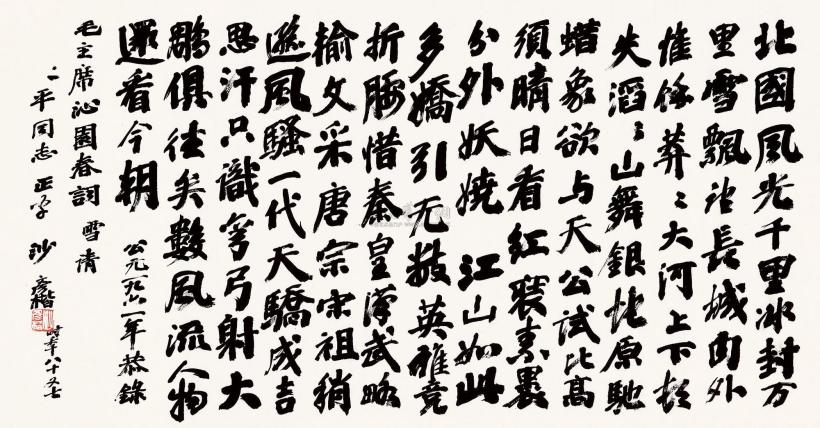 北國風光千里冰封万
里雪飄望長城内外
惟餘莽〻大河上下頓
失滔〻山舞銀蛇原馳
蜡象欲与天公試比高
須晴日看红裝素裹
分外妖嬈 江山如此
多嬌引无數英雄竞
折腰惜秦皇漢武略
输文采唐宗宋祖稍
遜風騷一代天驕成吉
思汗只識弯弓射大
鵰俱往矣數風流人物
還看今朝 公元一九六一年恭錄
毛主席沁園春詞 雪 请
二平同志正字 沙彦楷 时年八十又七